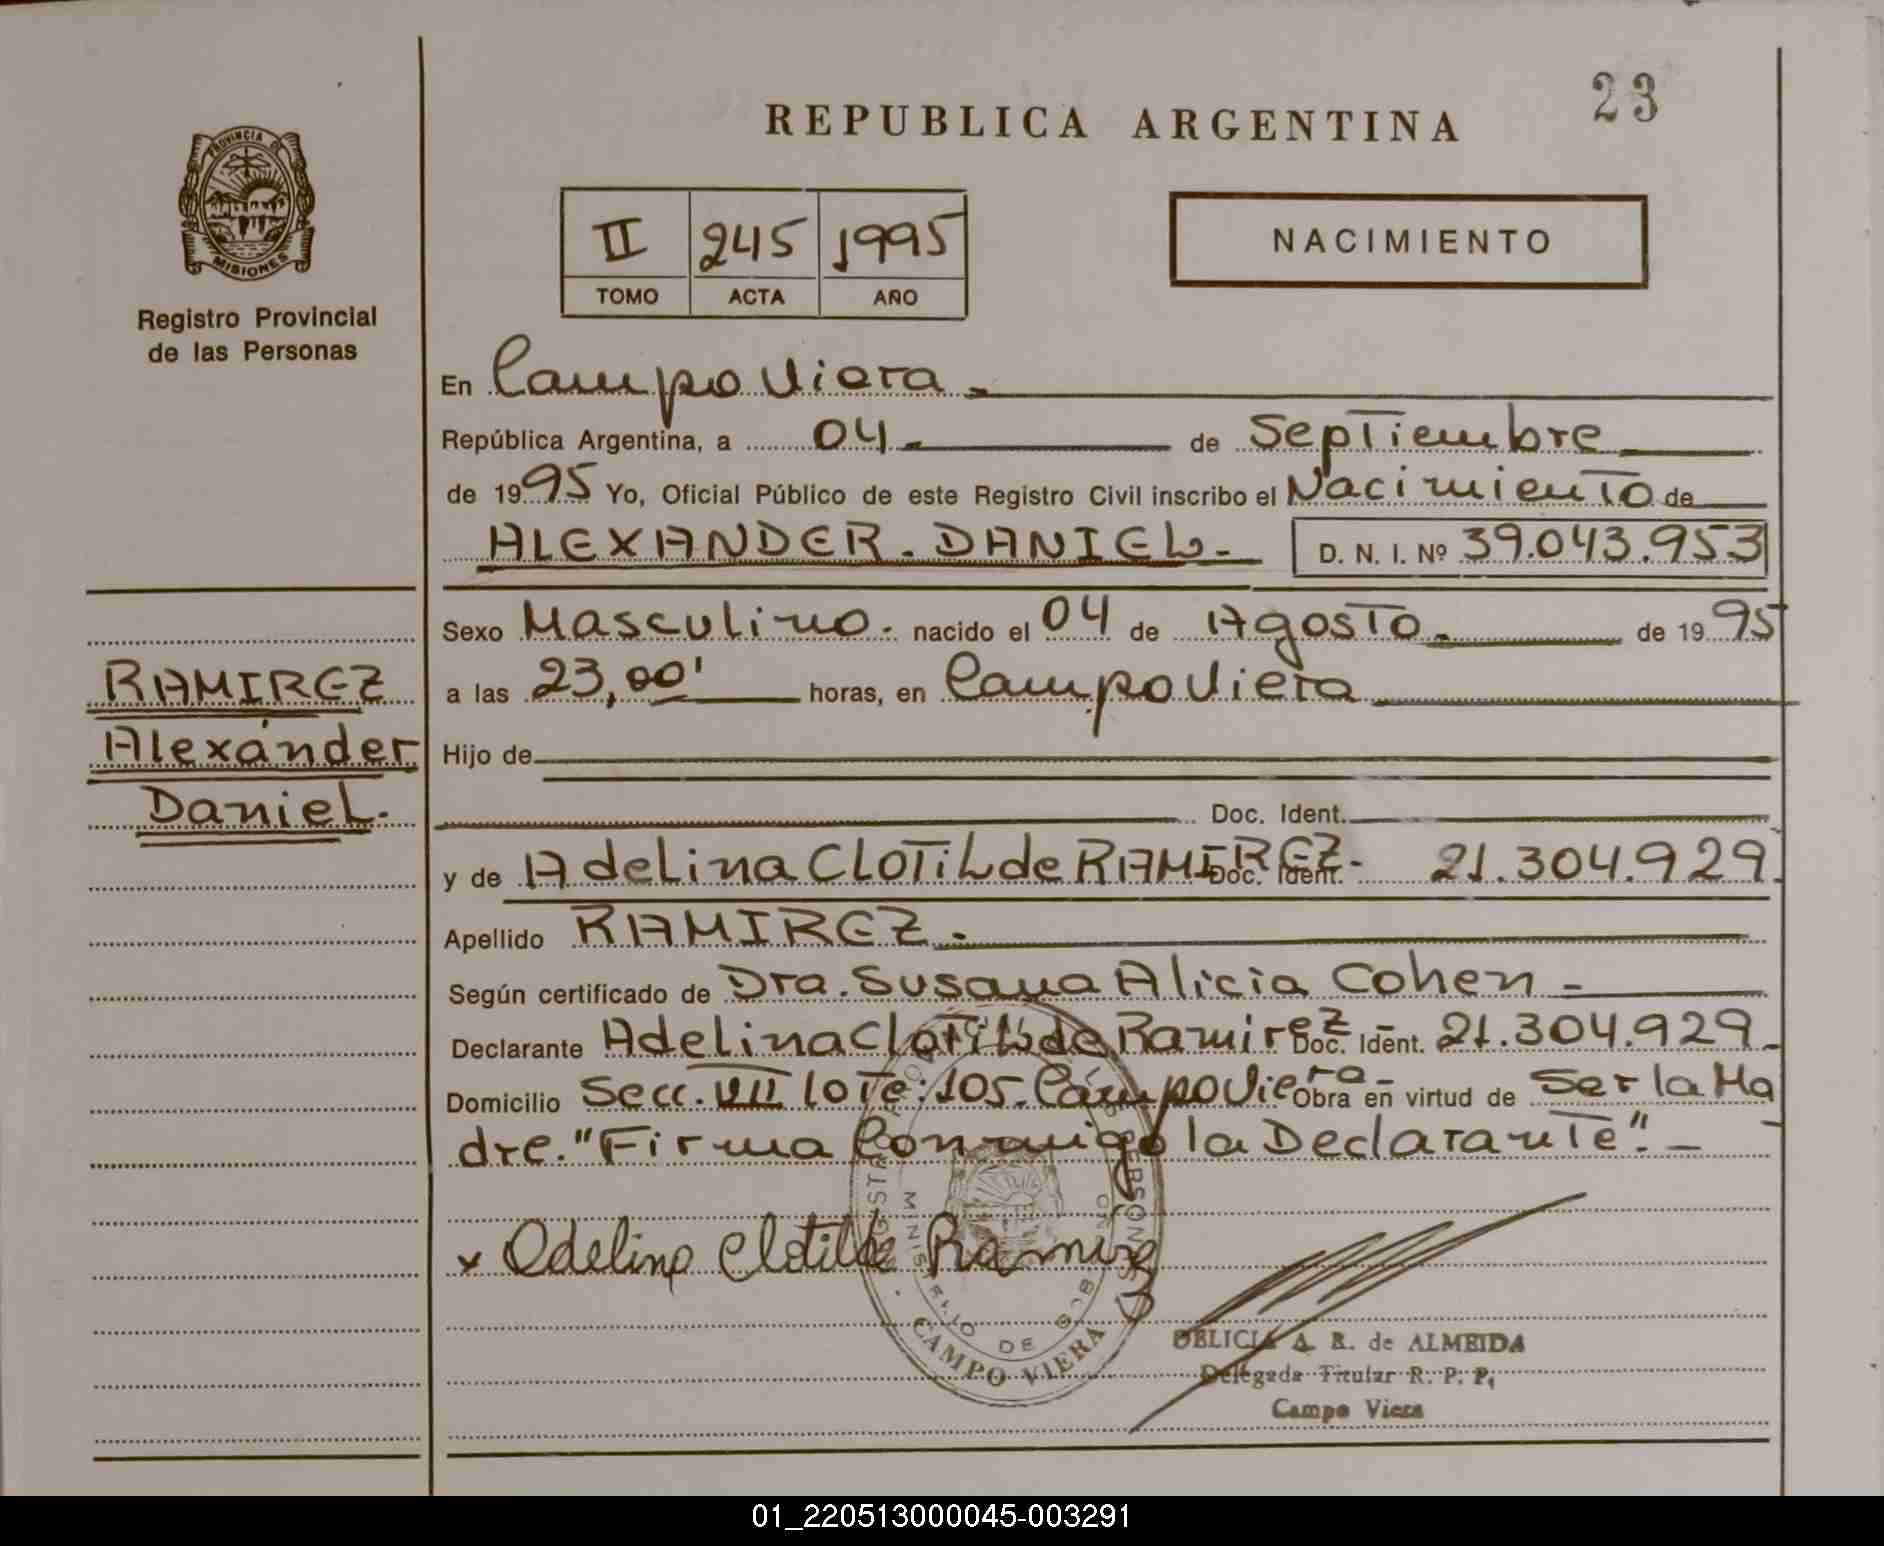 23
REPUBLICA ARGENTINA
PROVINCIA DE
MISIONES
Registro Provincial
de las Personas
II 245 1995
TOMO ACTA AÑO
NACIMIENTO
En Campo Viera.
República Argentina, a 04. de Septiembre
de 1995 Yo, Oficial Público de este Registro Civil inscribo el Nacimiento de
ALEXANDER. DANIEL.- D. N. I. Nº 39.043.953
Sexo Masculino. nacido el 04 de Agosto. de 1995
a las 23,00' horas, en Campo Viera
Hijo de
Doc. Ident.
y de Adelina CLOTiLde RAMIREZ.- Doc. Ident. 21.304.929.
Apellido RAMIREZ.
Según certificado de Dra. Susana Alicia Cohen -
Declarante Adelina CloTiLde Ramirez Doc. Ident. 21.304.929.-
Domicilio Secc. VII loTe: 105. Campo Viera- Obra en virtud de Ser la Ma
dre. "Firma Conmigo la Declarante". -
RAMIREZ
Alexánder
Daniel.
x Adelina Clotilde Ramirez
MINISTERIO DE GOB
CAMPO VIERA
DELICIA A. R. de ALMEIDA
Delegada Titular R. P. P.
Campo Viera
01_220513000045-003291